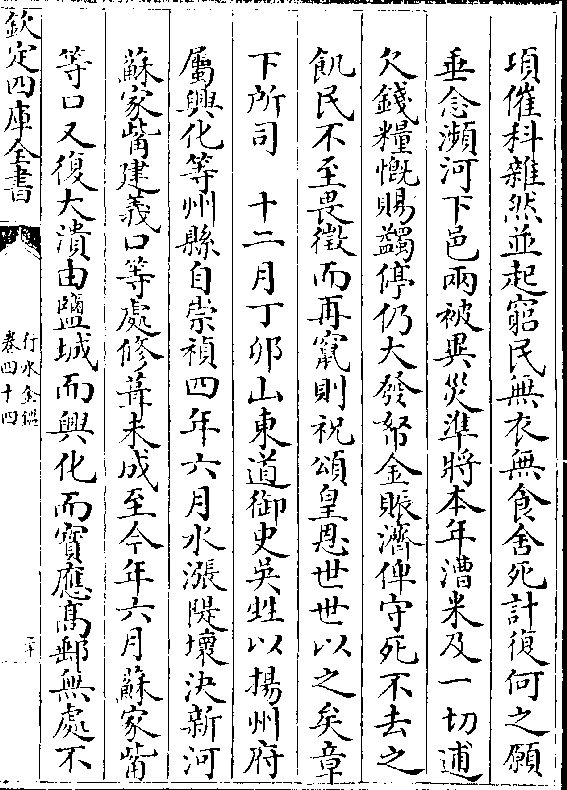 項催科雜然並起窮民無衣無食舍死計復何之願
垂念瀕河下邑兩被異災準將本年漕米及一切逋
欠錢糧慨賜蠲停仍大發帑金賑濟俾守死不去之
飢民不至畏徵而再竄則祝頌皇恩世世以之矣章
下所司　十二月丁卯山東道御史吳甡以揚州府
屬興化等州縣自崇禎四年六月水漲隄壞決新河
蘇家嘴建義口等處修葺未成至今年六月蘇家嘴
等口又復大潰由鹽城而興化而寶應髙郵無處不
欽定四庫全書
行水金鑑
卷四十四